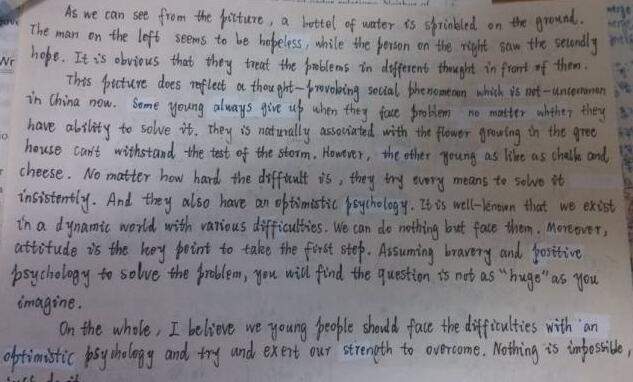 As we can see from the picture, a bottel of water is sprinkled on the ground.
The man on the left seems to be hopeless, while the person on the right saw the secondly
hope. It is obvious that they treat the problems in different thought in front of them.
This picture does reflect a thought-provoking social phenomenon which is not-uncommon
in China now. Some young always give up when they face problem no matter whther they
have ability to solve it. They is naturally associated with the flower growing in the gree
house can't withstand the test of the storm. However, the other young as like as chalk and
cheese. No matter how hard the difficult is, they try every means to solve it
insistently. And they also have an optimistic psychology. It is well-known that we exist
in a dynamic world with various difficulties. We can do nothing but face them. Moreover,
attitude is the key point to take the first step. Assuming bravery and positive
psychology to solve the problem, you will find the question is not as "huge" as you
imagine.
On the whole, I believe we young people should face the difficulties with an
optimistic psychology and try and exert our strength to overcome. Nothing is impossible,